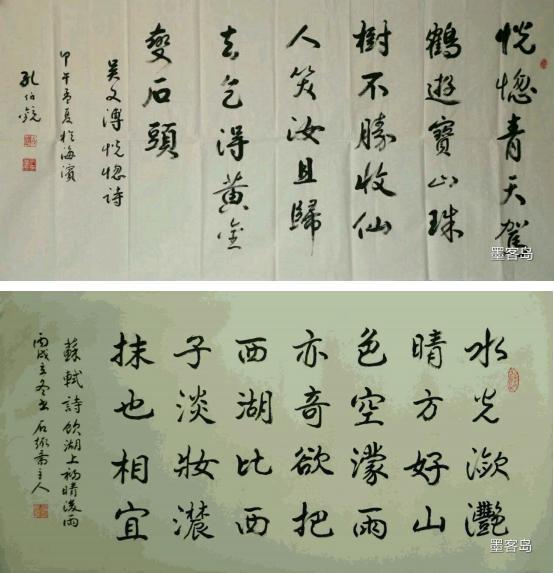 恍惚青天駕
鶴遊寶山珠
樹不勝收仙
人笑汝且歸
去乞得黄金
變石頭
吴文溥恍惚詩
甲午孟夏於海濱
孔伯
墨客岛
水光瀲灩
晴方好山
色空濛雨
亦奇欲把
西湖比西
子淡妝濃
抹也相宜
蘇軾詩飲湖上初晴後雨
丙戌立冬書石齋主人
墨客岛